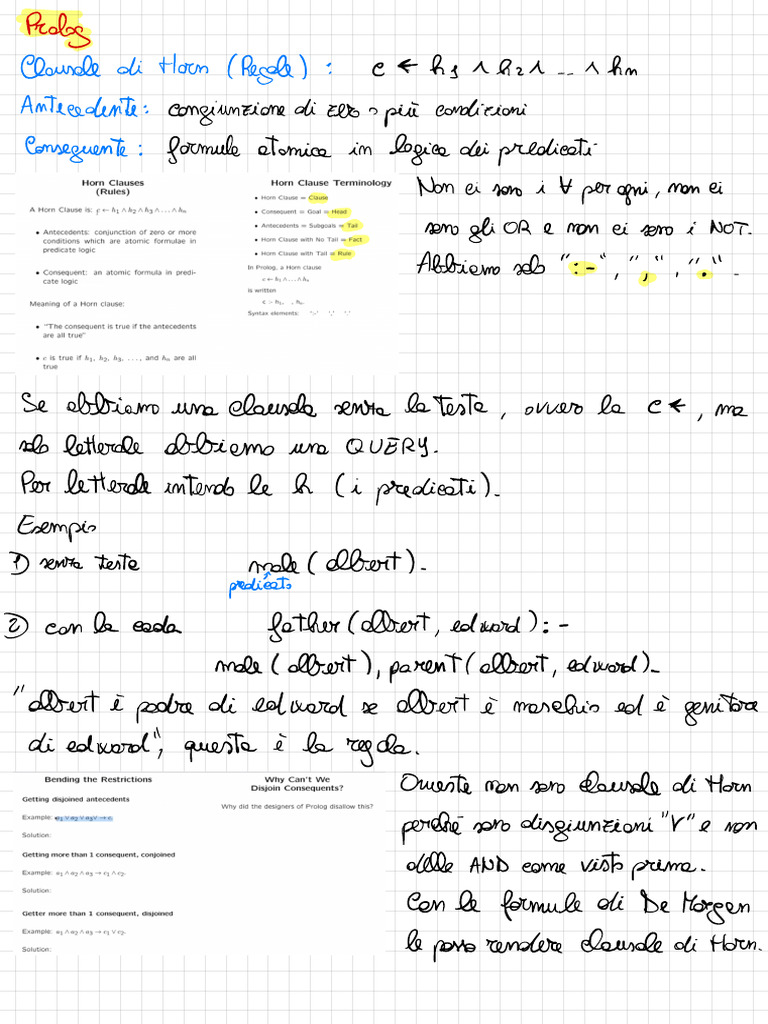 Prolog
Clausole di Horn (Regole) : c ← h1 ∧ h2 ∧ ... ∧ hn
Antecedente: congiunzione di zero o più condizioni
Conseguente: formula atomica in logica dei predicati
Horn Clauses
(Rules)
A Horn Clause is: c ← h1 ∧ h2 ∧ h3 ∧ ... ∧ hn
• Antecedents: conjunction of zero or more
conditions which are atomic formulae in
predicate logic
• Consequent: an atomic formula in predi-
cate logic
Meaning of a Horn clause:
• "The consequent is true if the antecedents
are all true"
• c is true if h1, h2, h3, ..., and hn are all
true
Horn Clause Terminology
• Horn Clause = Clause
• Consequent = Goal = Head
• Antecedents = Subgoals = Tail
• Horn Clause with No Tail = Fact
• Horn Clause with Tail = Rule
In Prolog, a Horn clause
c ← h1 ∧ ... ∧ hn
is written
c :- h1, , hn.
Syntax elements: ':-' ',' '.'
Non ci sono i ∀ per ogni, non ci
sono gli OR e non ci sono i NOT.
Abbiamo solo ":-", ",", ".".
Se abbiamo una clausola senza la testa, ovvero la c ←, ma
solo letterale abbiamo una QUERY.
Per letterale intendo le h (i predicati).
Esempio
1) senza testa male(albert).
predicato
2) con la coda father(albert, edward):-
male(albert), parent(albert, edward).
"albert è padre di edward se albert è maschio ed è genitore
di edward", questa è la regola.
Bending the Restrictions
Getting disjoined antecedents
Example: a1 ∨ a2 ∨ a3 → c.
Solution:
Getting more than 1 consequent, conjoined
Example: a1 ∧ a2 ∧ a3 → c1 ∧ c2.
Solution:
Getter more than 1 consequent, disjoined
Example: a1 ∧ a2 ∧ a3 → c1 ∨ c2.
Solution:
Why Can't We
Disjoin Consequents?
Why did the designers of Prolog disallow this?
Queste non sono clausole di Horn
perché sono disgiunzioni "V" e non
delle AND come visto prima.
Con le formule di De Morgan
le posso rendere clausole di Horn.